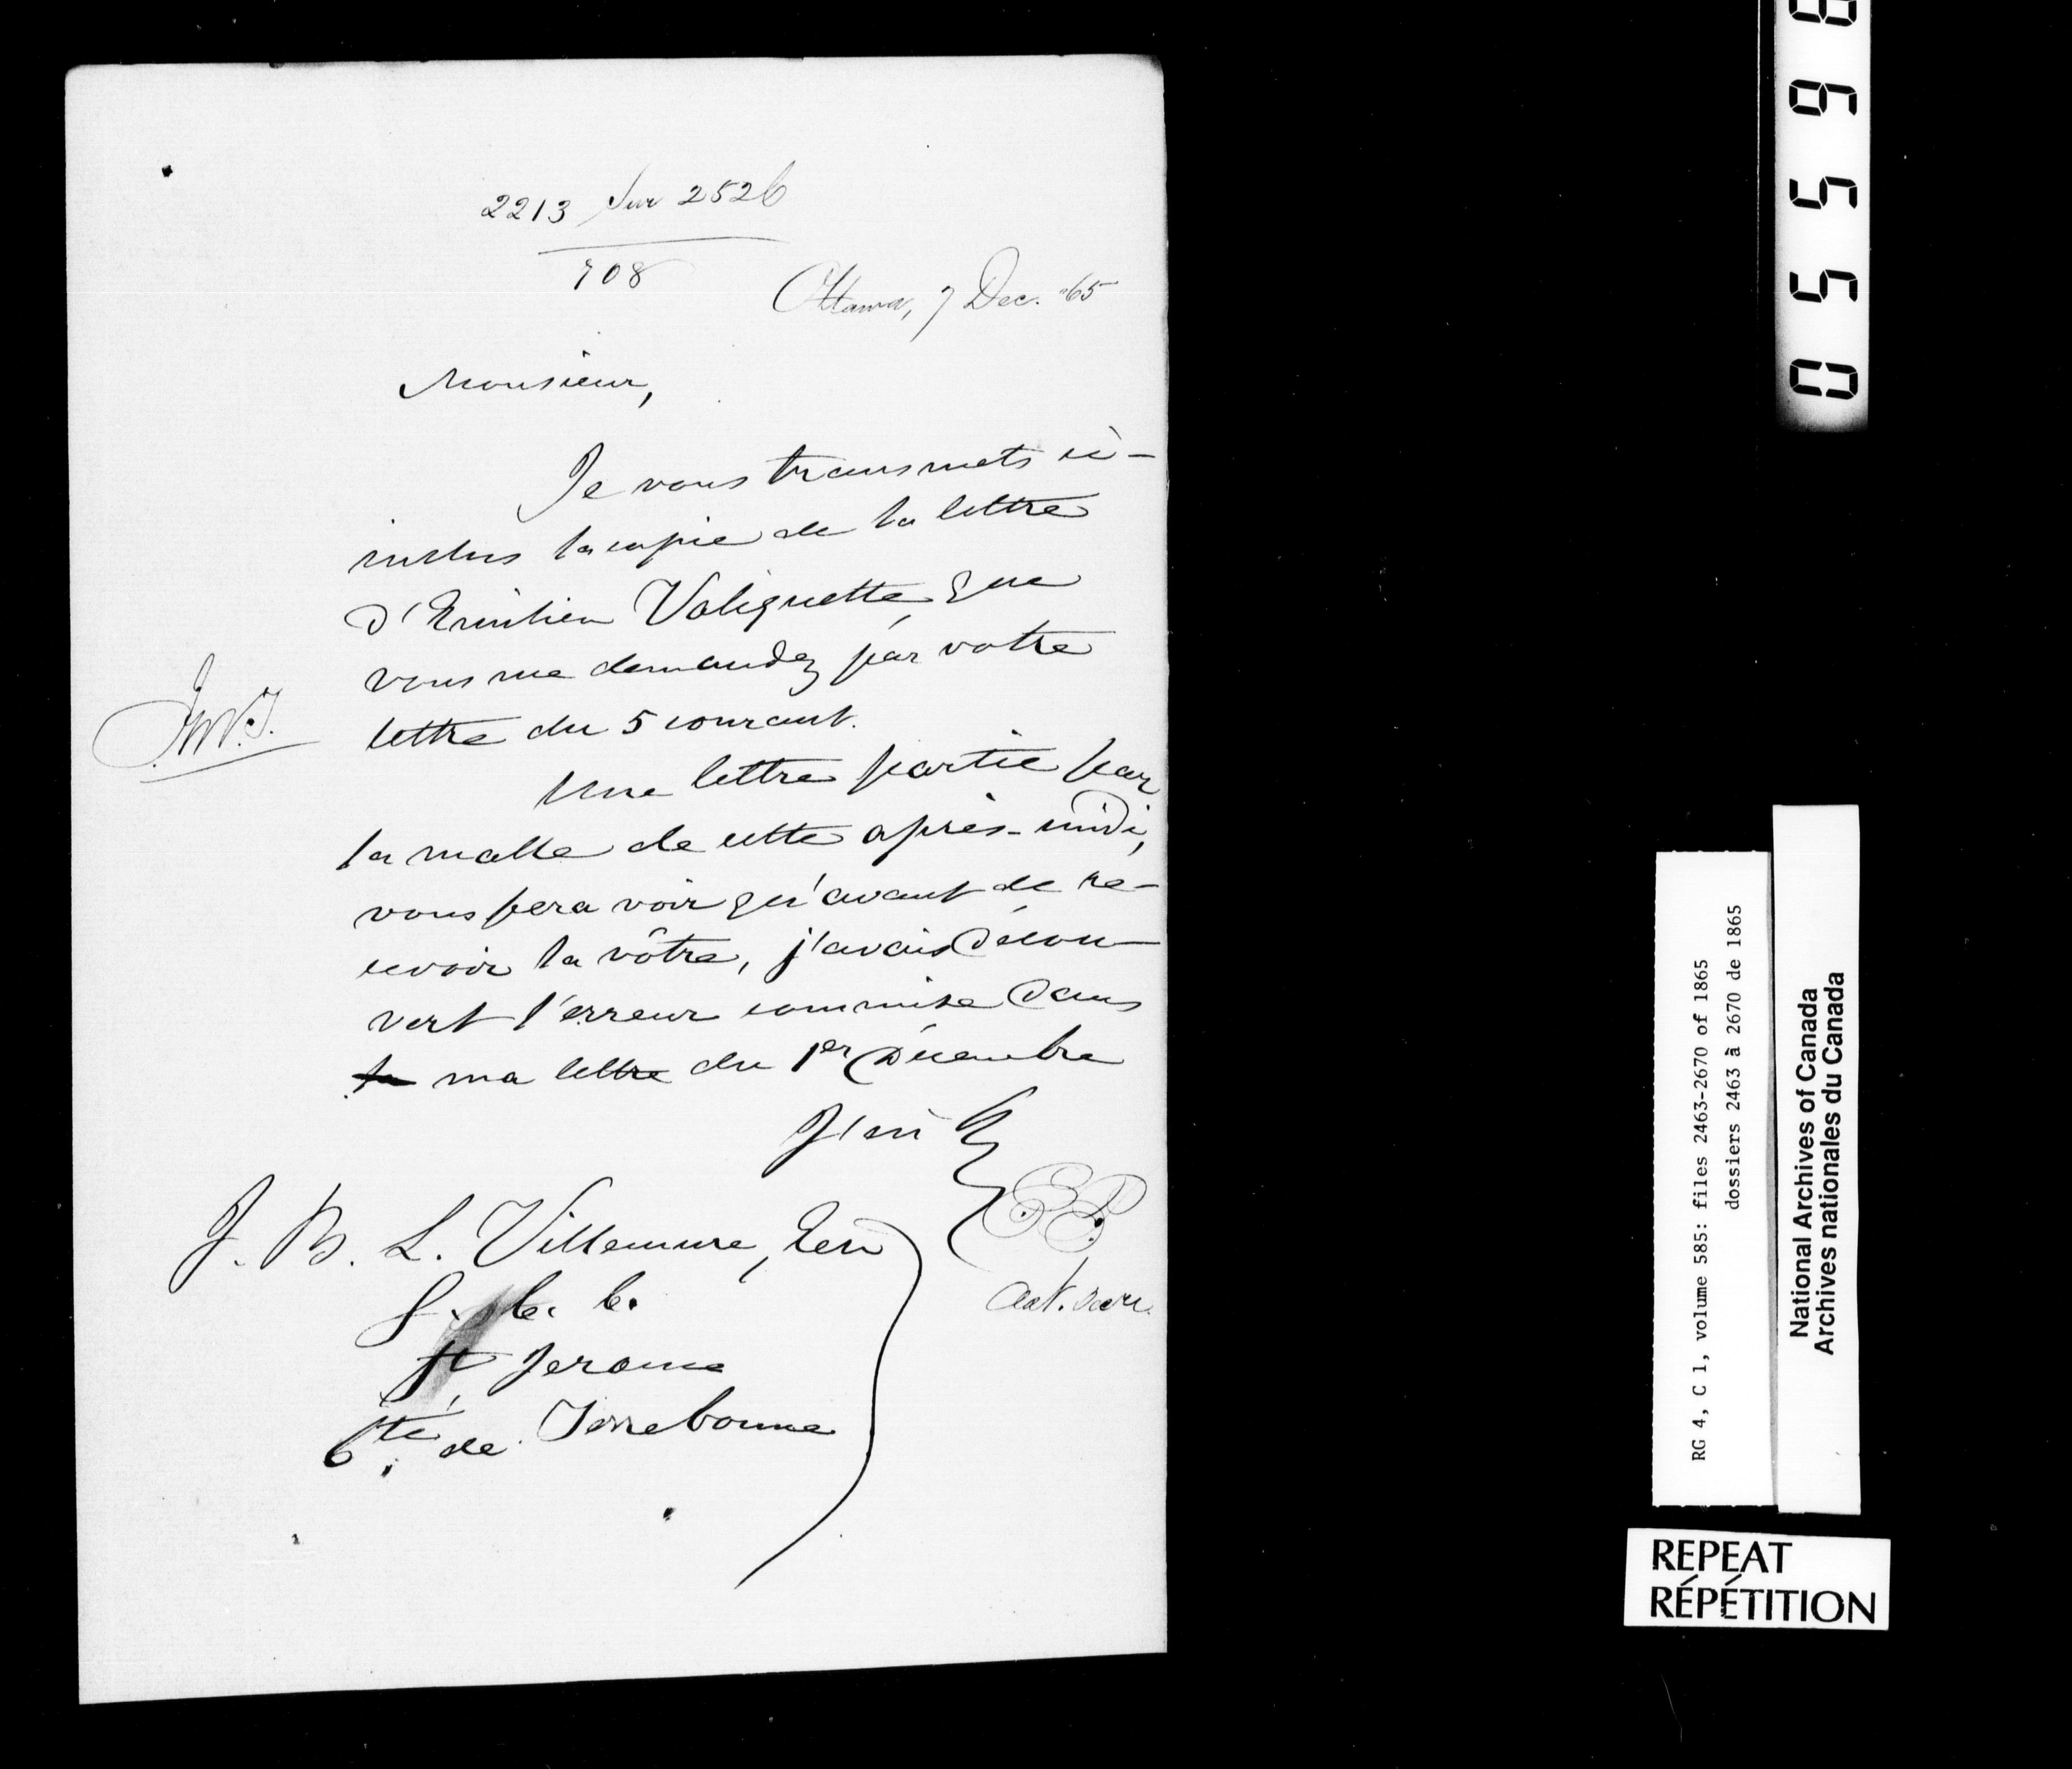 2213 sur 2526
708
Ottawa, 7 Dec. '65
Monsieur,
Je vous transmets ci-
inclus la copie de la lettre
d'Emilien Valiquette, que
vous me demandez par votre
lettre du 5 courant.
Une lettre partie par
la malle de cette après-midi,
vous fera voir qu'avant de re-
cevoir la vôtre, j'avais décou-
vert l'erreur commise dans
la ma lettre du 1er Décembre
J'ai
J. B. L. Villemure, Ecr
St Jerome
Cté de Terrebonne
05598
RG 4, C 1, volume 585: files 2463-2670 of 1865
dossiers 2463 à 2670 de 1865
National Archives of Canada
Archives nationales du Canada
REPEAT
RÉPÉTITION